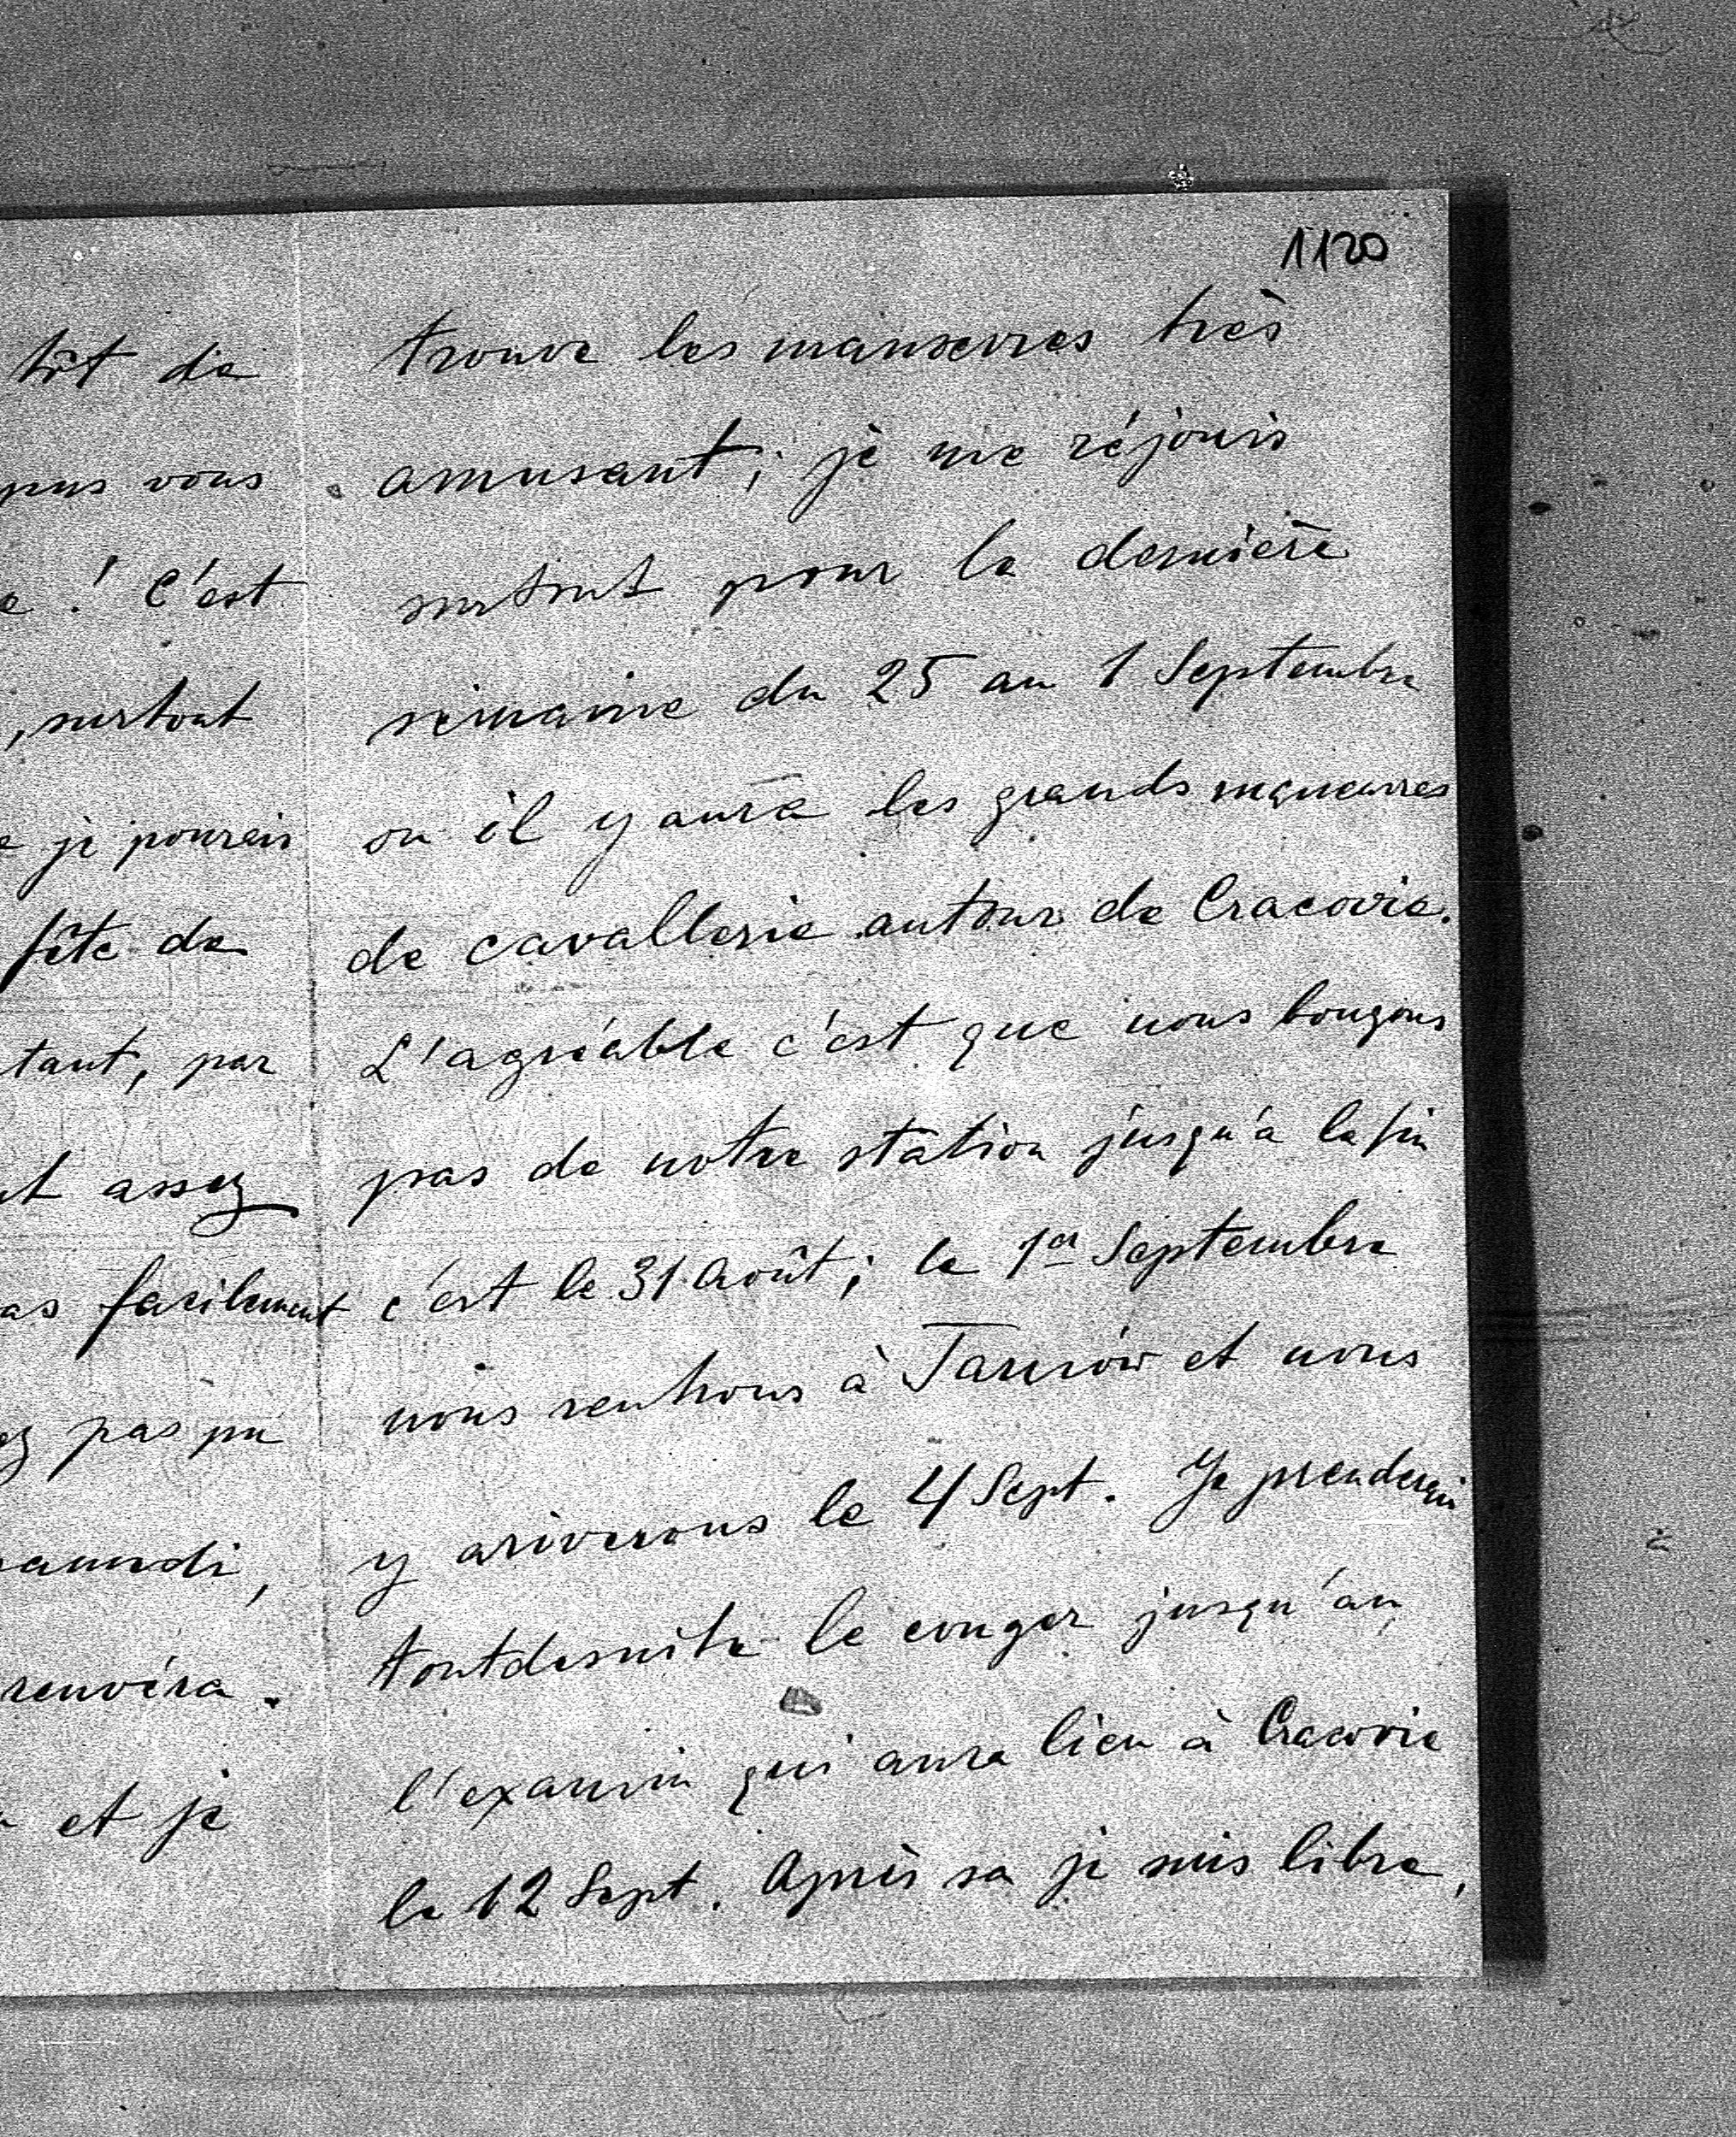 tôt de
pus vous
! C'est
, surtout
je pourais
fête de
tant, par
assez
facilement
pas pu
renvéra.
et je
1120
trouve les manoevres très
amusant; je me réjouis
surtout pour la dernière
semaine du 25 au 1 Septembre
ou il y aura les grands manoeuvres
de cavallerie autour de Cracovie.
L'agréable c'est que nous bougons
pas de notre station jusqu'à la fin
c'est le 31 Août; le 1er Septembre
nous rentrons à Tarnów et nous
y ariverons le 4 Sept. Je prenderai
toutdesuite le conger jusqu'au
l'examin qui aura lieu à Cracovie
le 12 Sept. Après sa je suis libre,